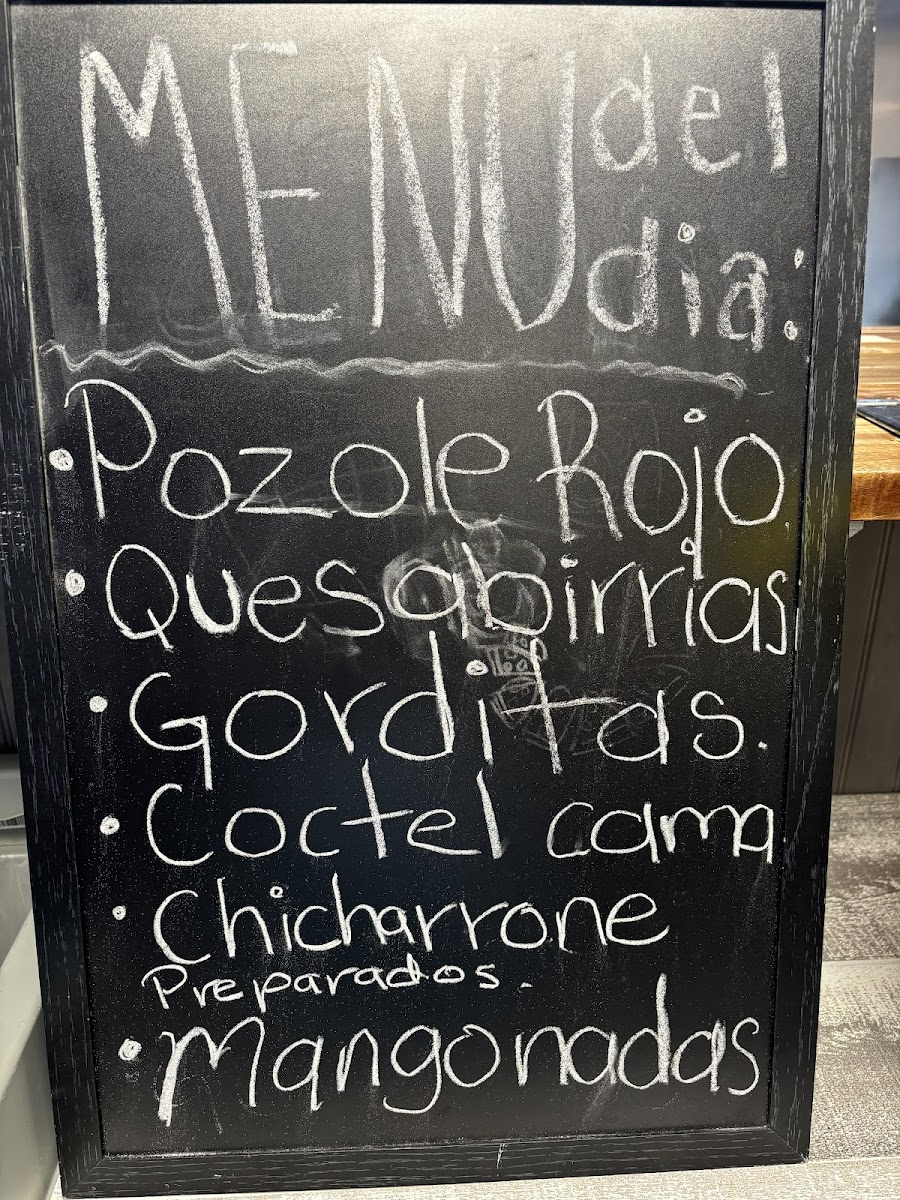 MENU del
dia:
• Pozole Rojo
• Quesabirrias
• Gorditas.
• Coctel cama
• Chicharrone
Preparados.
• Mangonadas